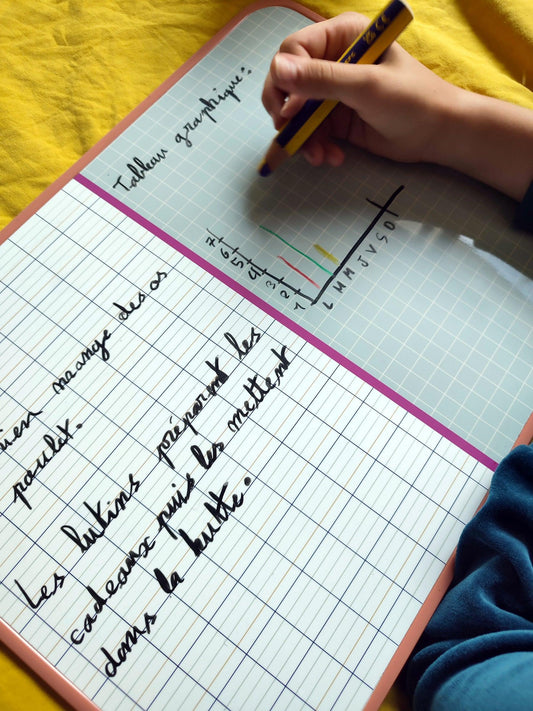 Tableau graphique :
7
6
5
4
3
2
1
L M M J V S D
mange des os
poulet.
Les lutins préparent les
cadeaux puis les mettent
dans la hutte.